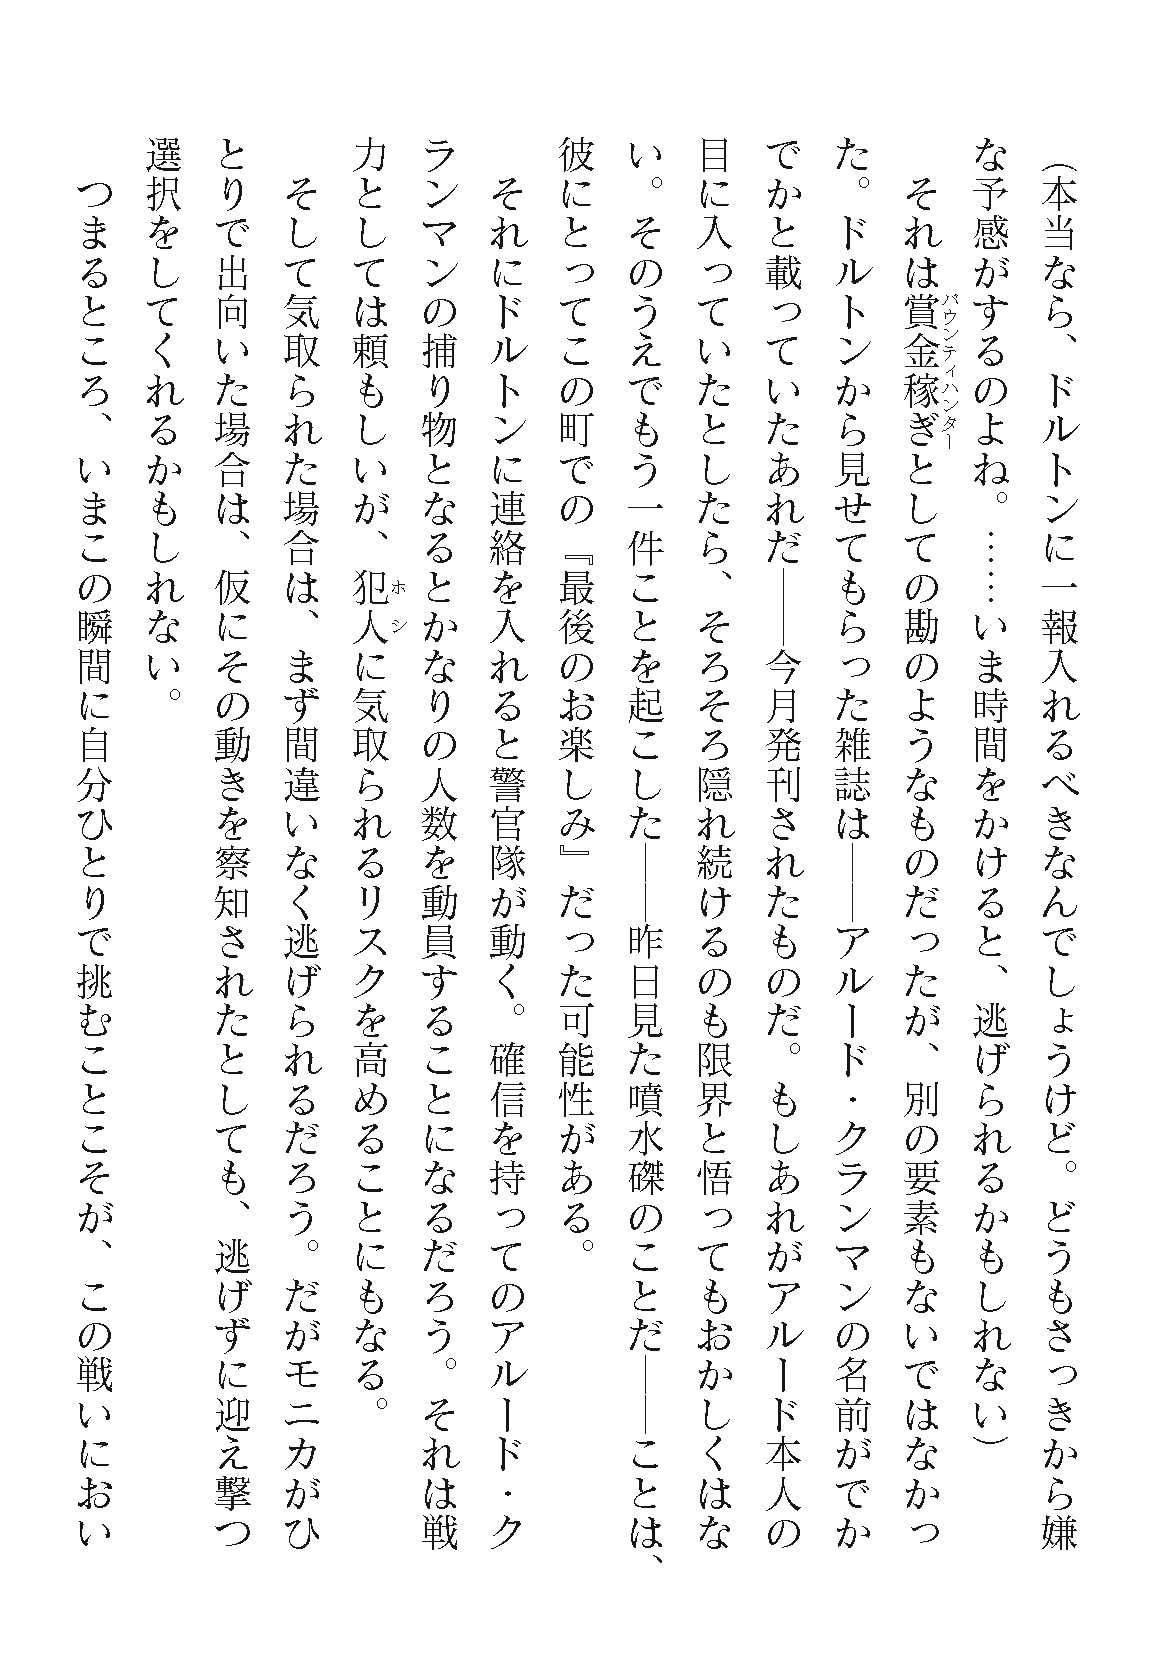 （本当なら、ドルトンに一報入れるべきなんでしょうけど。どうもさっきから嫌
な予感がするのよね。……いま時間をかけると、逃げられるかもしれない）
　それは賞金稼ぎバウンティハンターとしての勘のようなものだったが、別の要素もないではなかっ
た。ドルトンから見せてもらった雑誌は――アルード・クランマンの名前がでか
でかと載っていたあれだ――今月発刊されたものだ。もしあれがアルード本人の
目に入っていたとしたら、そろそろ隠れ続けるのも限界と悟ってもおかしくはな
い。そのうえでもう一件ことを起こした――昨日見た噴水磔のことだ――ことは、
彼にとってこの町での『最後のお楽しみ』だった可能性がある。
　それにドルトンに連絡を入れると警官隊が動く。確信を持ってのアルード・ク
ランマンの捕り物となるとかなりの人数を動員することになるだろう。それは戦
力としては頼もしいが、犯人ホシに気取られるリスクを高めることにもなる。
　そして気取られた場合は、まず間違いなく逃げられるだろう。だがモニカがひ
とりで出向いた場合は、仮にその動きを察知されたとしても、逃げずに迎え撃つ
選択をしてくれるかもしれない。
　つまるところ、いまこの瞬間に自分ひとりで挑むことこそが、この戦いにおい